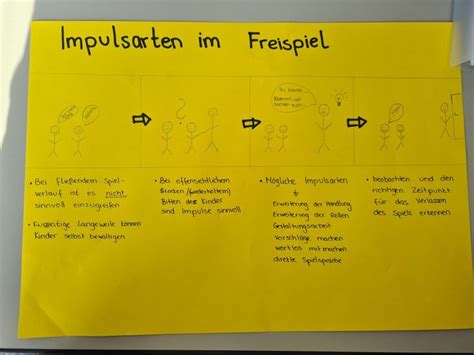 Impulsarten im Freispiel
? ?
• Bei fließendem Spiel-
verlauf ist es nicht
sinnvoll einzugreifen
• Kurzzeitige Langeweile können
Kinder selbst bewältigen
• Bei offensichtlichem
Bitten der Kinder
sind Impulse sinnvoll
• Mögliche Impulsarten
Erweiterung der Handlung
Erweiterung der Rollen
Gestaltungsarbeit
Vorschläge machen
wortlos mitmachen
direkte Spielsprache
• beobachten und den
richtigen Zeitpunkt
für das Verlassen
des Spiels erkennen